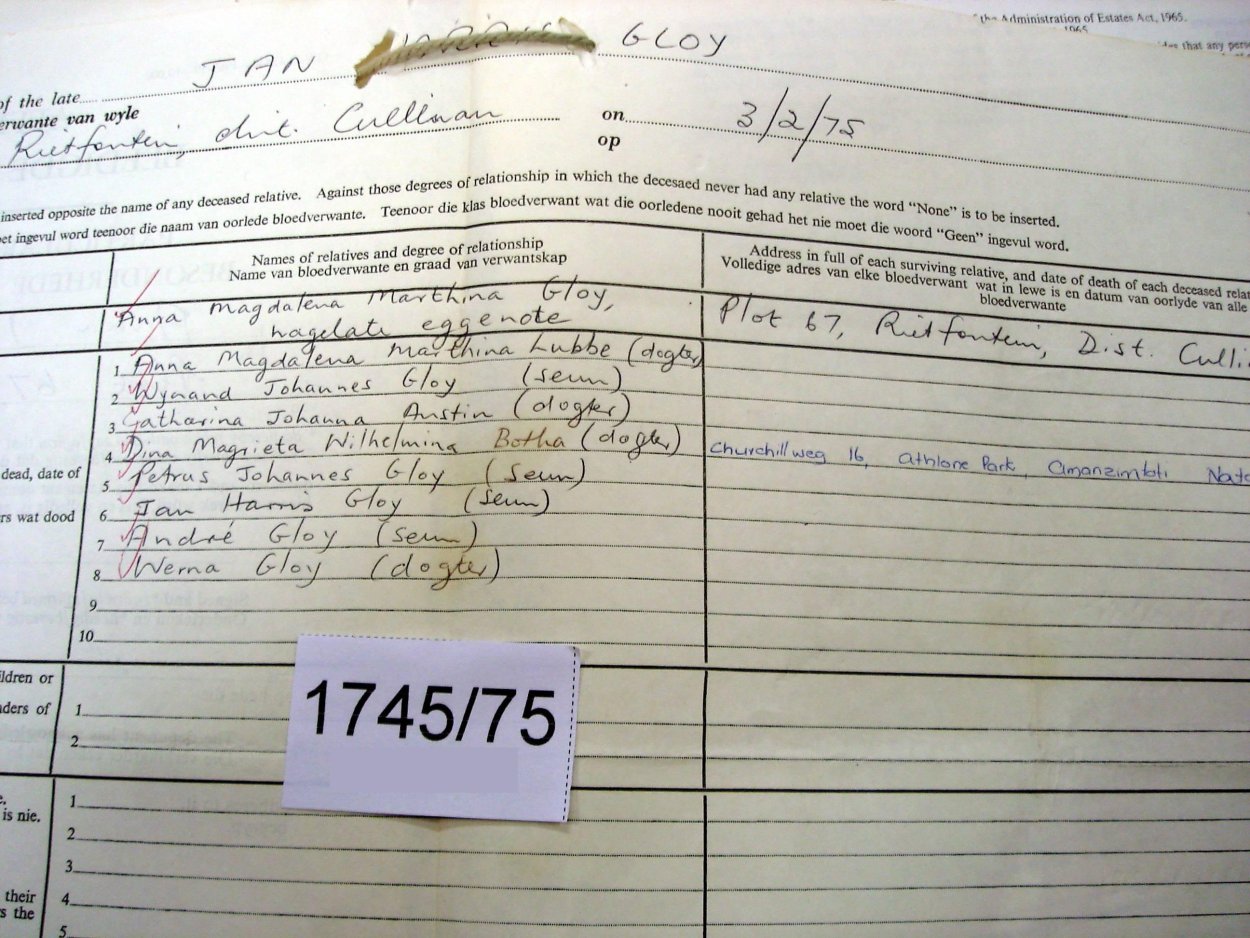 the Administration of Estates Act, 1965.
1965
that any
JAN HARRIS GLOY
of the late
erwante van wyle
Rietfontein, dist. Cullinan on 3/2/75
op
inserted opposite the name of any deceased relative. Against those degrees of relationship in which the decesaed never had any relative the word "None" is to be inserted.
oet ingevul word teenoor die naam van oorlede bloedverwante. Teenoor die klas bloedverwant wat die oorledene nooit gehad het nie moet die woord "Geen" ingevul word.
Names of relatives and degree of relationship
Name van bloedverwante en graad van verwantskap
Address in full of each surviving relative, and date of death of each deceased rela
Volledige adres van elke bloedverwant wat in lewe is en datum van oorlyde van alle
bloedverwante
Anna Magdalena Marthina Gloy,
nagelate eggenote
Plot 67, Rietfontein, Dist. Culli
1 Anna Magdalena Marthina Lubbe (dogter)
2 Wynand Johannes Gloy (seun)
3 Catharina Johanna Austin (dogter)
4 Dina Magrieta Wilhelmina Botha (dogter) Churchillweg 16, Athlone Park, Amanzimtoti Nata
dead, date of
5 Petrus Johannes Gloy (seun)
rs wat dood
6 Jan Harris Gloy (seun)
7 André Gloy (seun)
8 Werna Gloy (dogter)
9
10
ildren or
nders of
1
2
1745/75
1
is nie.
2
3
their
4
s the
5